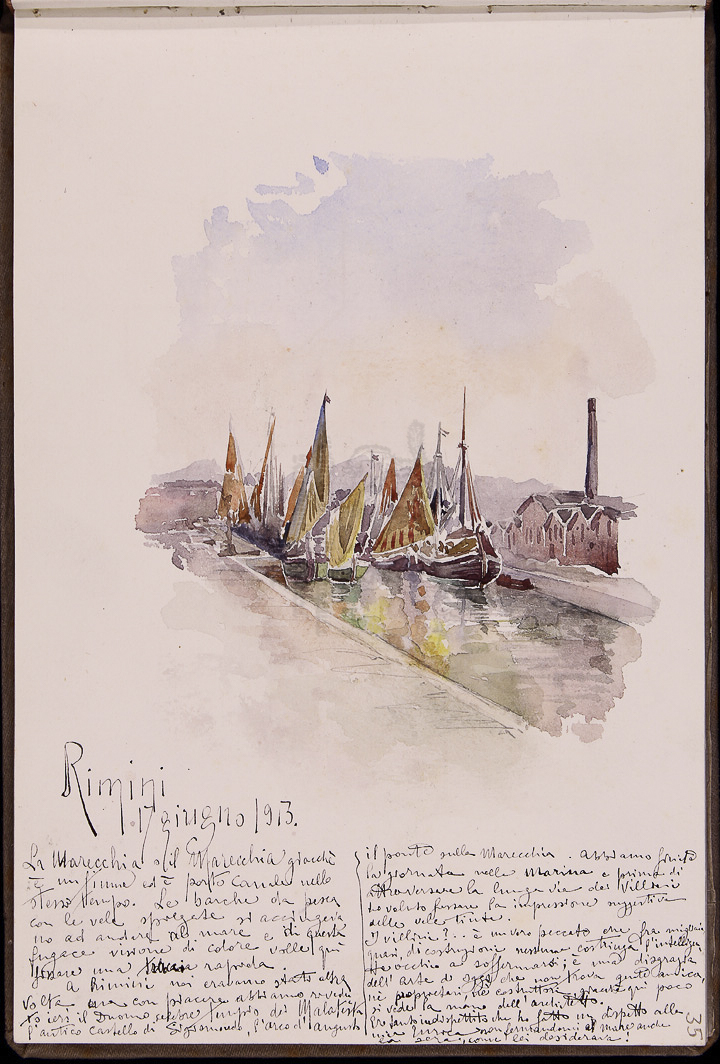 Rimini
17 giugno 1913.
La Marecchia o il Marecchia giacchè
è un fiume ed è porto canale nello
stesso tempo. Le barche da pesca
con le vele spiegate si accingeva
no ad andare al mare e di questa
fugace visione di colore volli qui
fissare una rapida.
A Rimini noi eravamo stati altra
volta ma con piacere abbiamo rivedu
to ieri il Duomo celebre tempio dei Malatesta
l'antico castello di Sigismondo, l'arco d'augusto
il ponte sulla Marecchia. Abbiamo finito
la giornata nella Marina e prima di
attraversare la lunga via dei Villini
ho voluto fissare la impressione suggestiva
delle vele tinte.
I villini?... è un vero peccato che fra migliaia
quasi, di costruzioni nessuna costringa l'intelligen
te occhio ad soffermarsi; è una disgrazia
dell'arte di oggi che non trova gusto
nè proprietari, nè costruttori dovunque poco
si vede la mano dell'architetto.
Ero tanto indispettito che ho fatto un dispetto alla
mia non fermandomi al mare anche
la sera, come lei desiderava!
35